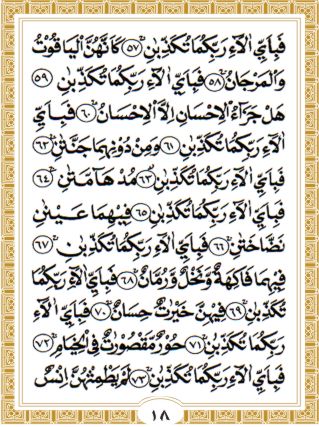 فَبِاَيِّ اٰلَآءِ رَبِّكُمَا تُكَذِّبٰنِ ﴿٥٧﴾ كَاَنَّهُنَّ الْيَاقُوْتُ
وَالْمَرْجَانُ ﴿٥٨﴾ فَبِاَيِّ اٰلَآءِ رَبِّكُمَا تُكَذِّبٰنِ ﴿٥٩﴾
هَلْ جَزَآءُ الْاِحْسَانِ اِلَّا الْاِحْسَانُ ﴿٦٠﴾ فَبِاَيِّ
اٰلَآءِ رَبِّكُمَا تُكَذِّبٰنِ ﴿٦١﴾ وَمِنْ دُوْنِهِمَا جَنَّتٰنِ ﴿٦٢﴾
فَبِاَيِّ اٰلَآءِ رَبِّكُمَا تُكَذِّبٰنِ ﴿٦٣﴾ مُدْهَآمَّتٰنِ ﴿٦٤﴾
فَبِاَيِّ اٰلَآءِ رَبِّكُمَا تُكَذِّبٰنِ ﴿٦٥﴾ فِيْهِمَا عَيْنٰنِ
نَضَّاخَتٰنِ ﴿٦٦﴾ فَبِاَيِّ اٰلَآءِ رَبِّكُمَا تُكَذِّبٰنِ ﴿٦٧﴾
فِيْهِمَا فَاكِهَةٌ وَّنَخْلٌ وَّرُمَّانٌ ﴿٦٨﴾ فَبِاَيِّ اٰلَآءِ رَبِّكُمَا
تُكَذِّبٰنِ ﴿٦٩﴾ فِيْهِنَّ خَيْرٰتٌ حِسَانٌ ﴿٧٠﴾ فَبِاَيِّ اٰلَآءِ
رَبِّكُمَا تُكَذِّبٰنِ ﴿٧١﴾ حُوْرٌ مَّقْصُوْرٰتٌ فِى الْخِيَامِ ﴿٧٢﴾
فَبِاَيِّ اٰلَآءِ رَبِّكُمَا تُكَذِّبٰنِ ﴿٧٣﴾ لَمْ يَطْمِثْهُنَّ اِنْسٌ
١٨